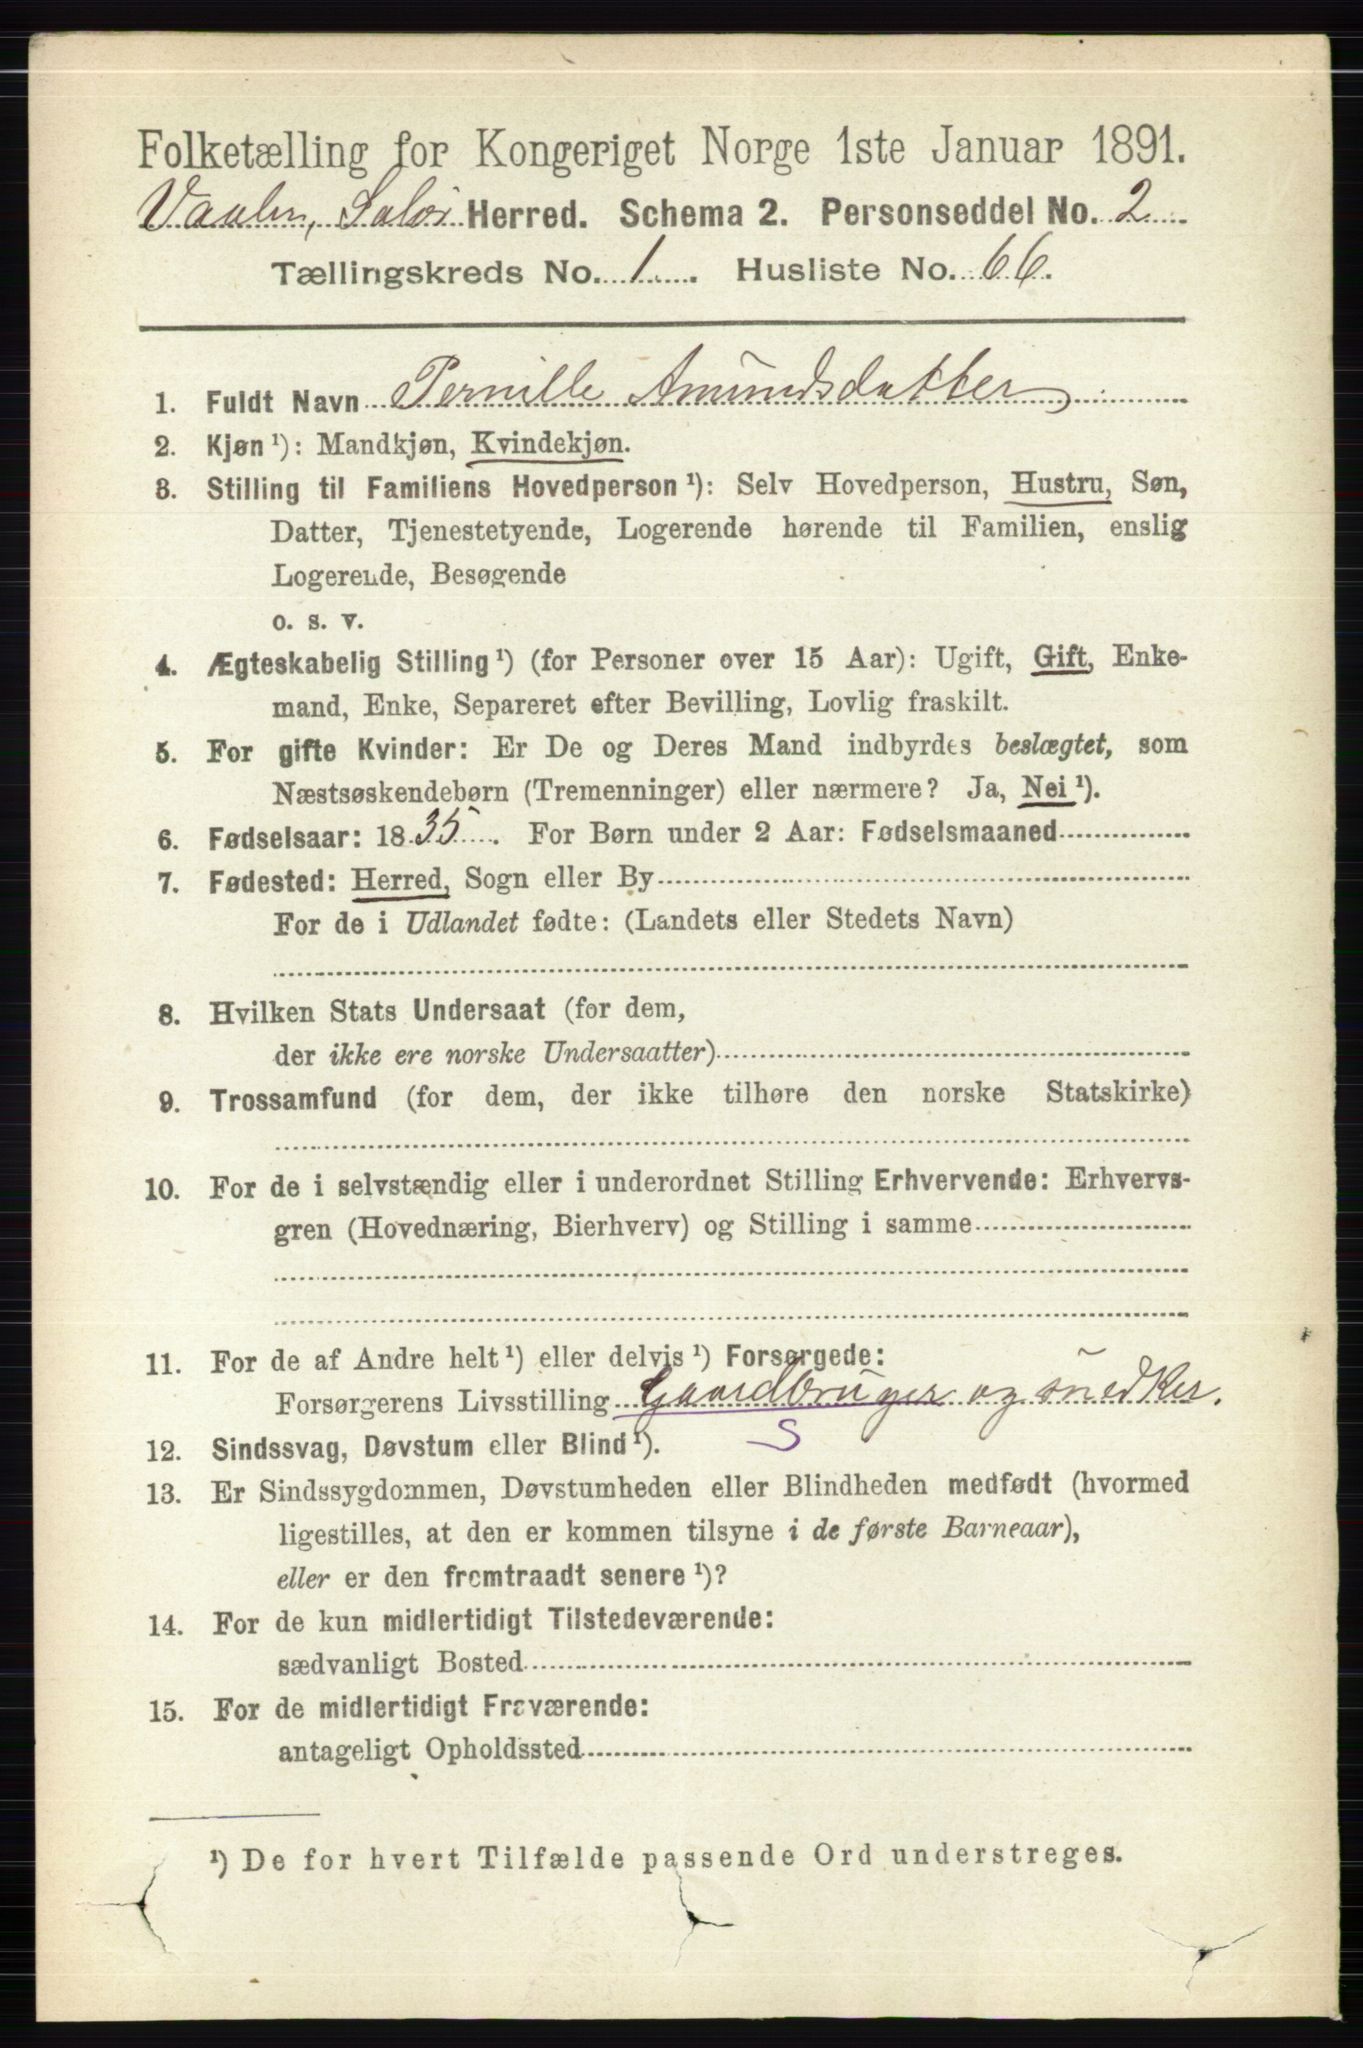 Folketælling for Kongeriget Norge 1ste Januar 1891.
Vaaler, Solør Herred. Schema 2. Personseddel No. 2
Tællingskreds No. 1. Husliste No. 66.
1. Fuldt Navn Pernille Amundsdatter
2. Kjøn ¹): Mandkjøn, Kvindekjøn.
3. Stilling til Familiens Hovedperson ¹): Selv Hovedperson, Hustru, Søn,
Datter, Tjenestetyende, Logerende hørende til Familien, enslig
Logerende, Besøgende
o. s. v.
4. Ægteskabelig Stilling ¹) (for Personer over 15 Aar): Ugift, Gift, Enke-
mand, Enke, Separeret efter Bevilling, Lovlig fraskilt.
5. For gifte Kvinder: Er De og Deres Mand indbyrdes beslægtet, som
Næstsøskendebørn (Tremenninger) eller nærmere? Ja, Nei ¹).
6. Fødselsaar: 1835. For Børn under 2 Aar: Fødselsmaaned
7. Fødested: Herred, Sogn eller By
For de i Udlandet fødte: (Landets eller Stedets Navn)
8. Hvilken Stats Undersaat (for dem,
der ikke ere norske Undersaatter)
9. Trossamfund (for dem, der ikke tilhøre den norske Statskirke)
10. For de i selvstændig eller i underordnet Stilling Erhvervende: Erhvervs-
gren (Hovednæring, Bierhverv) og Stilling i samme
11. For de af Andre helt ¹) eller delvis ¹) Forsørgede:
Forsørgerens Livsstilling Gaardbruger og snedker.
S
12. Sindssvag, Døvstum eller Blind ¹).
13. Er Sindssygdommen, Døvstumheden eller Blindheden medfødt (hvormed
ligestilles, at den er kommen tilsyne i de første Barneaar),
eller er den fremtraadt senere ¹)?
14. For de kun midlertidigt Tilstedeværende:
sædvanligt Bosted
15. For de midlertidigt Fraværende:
antageligt Opholdssted
¹) De for hvert Tilfælde passende Ord understreges.